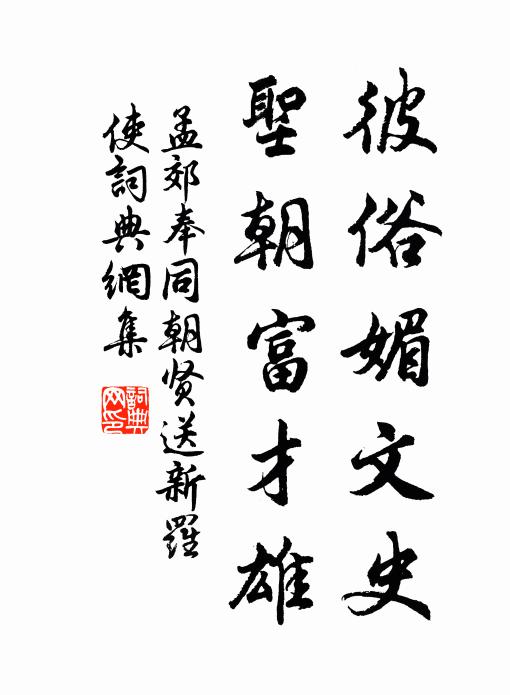 彼俗媚文史
聖朝富才雄
孟郊奉同朝贤送新羅
使詞典網集
詞典
网印